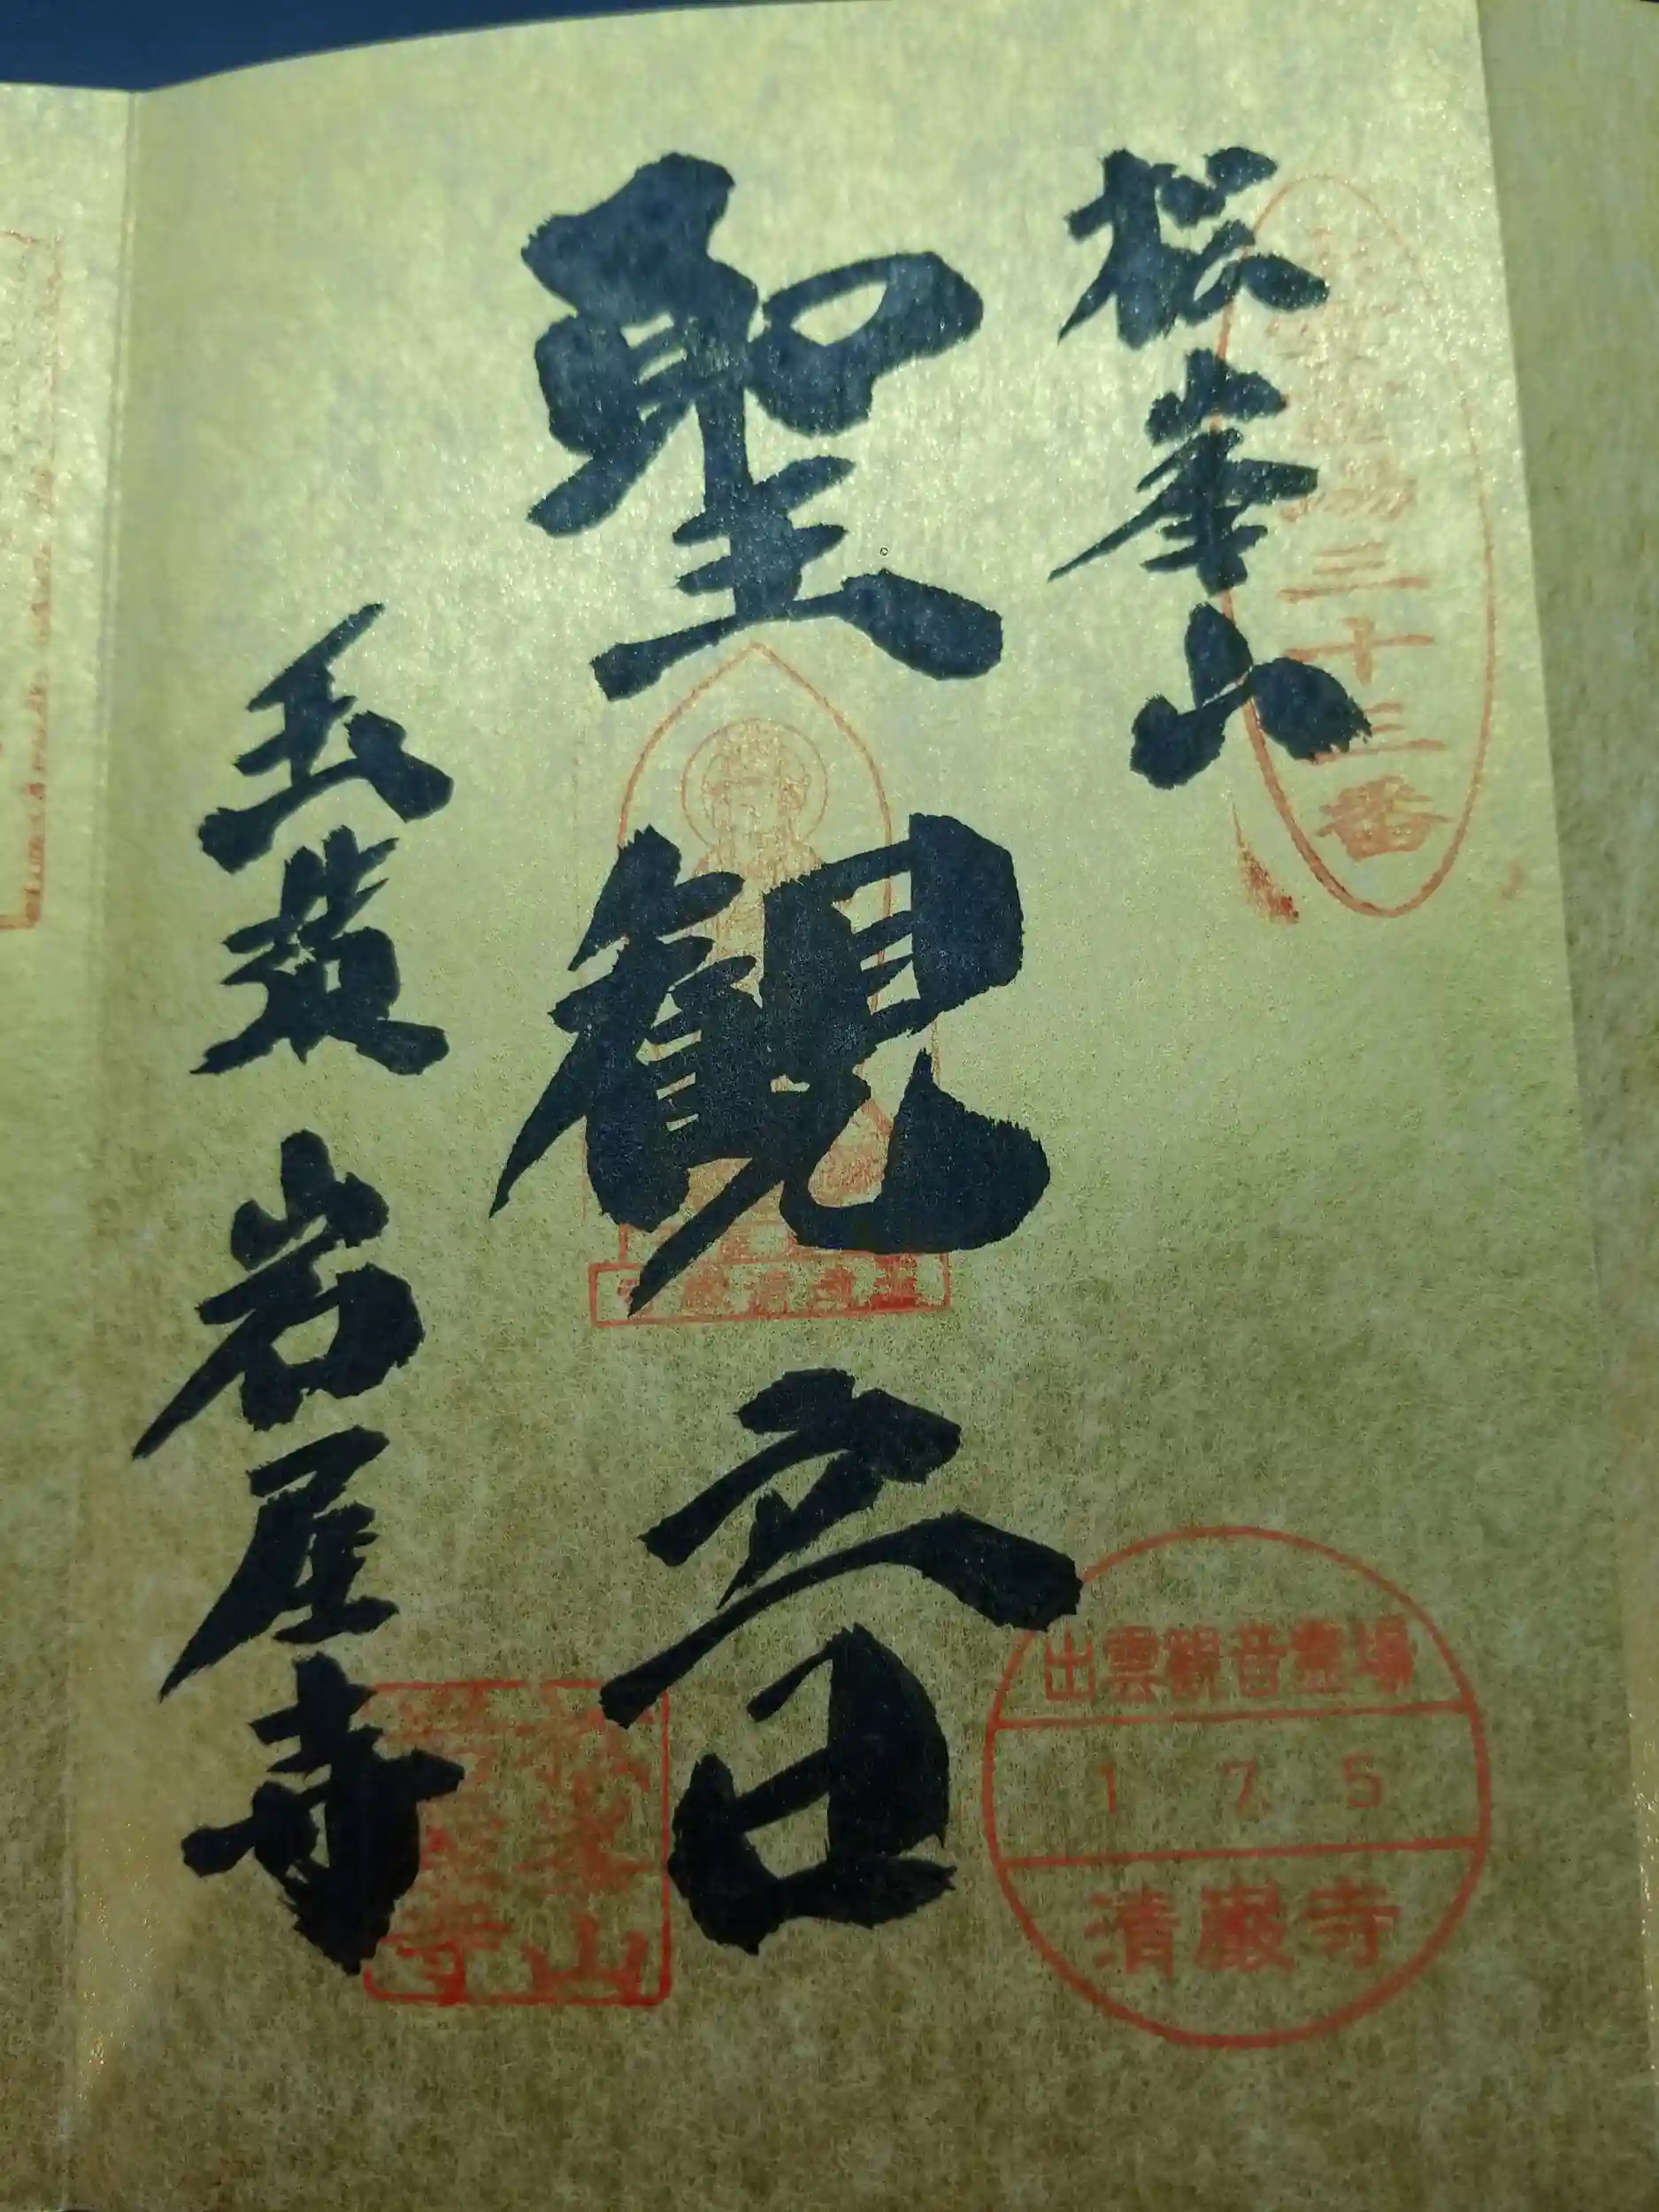 松峯山
三十三番
聖観音
玉造 岩屋寺
出雲観音霊場
1 7 5
清巌寺